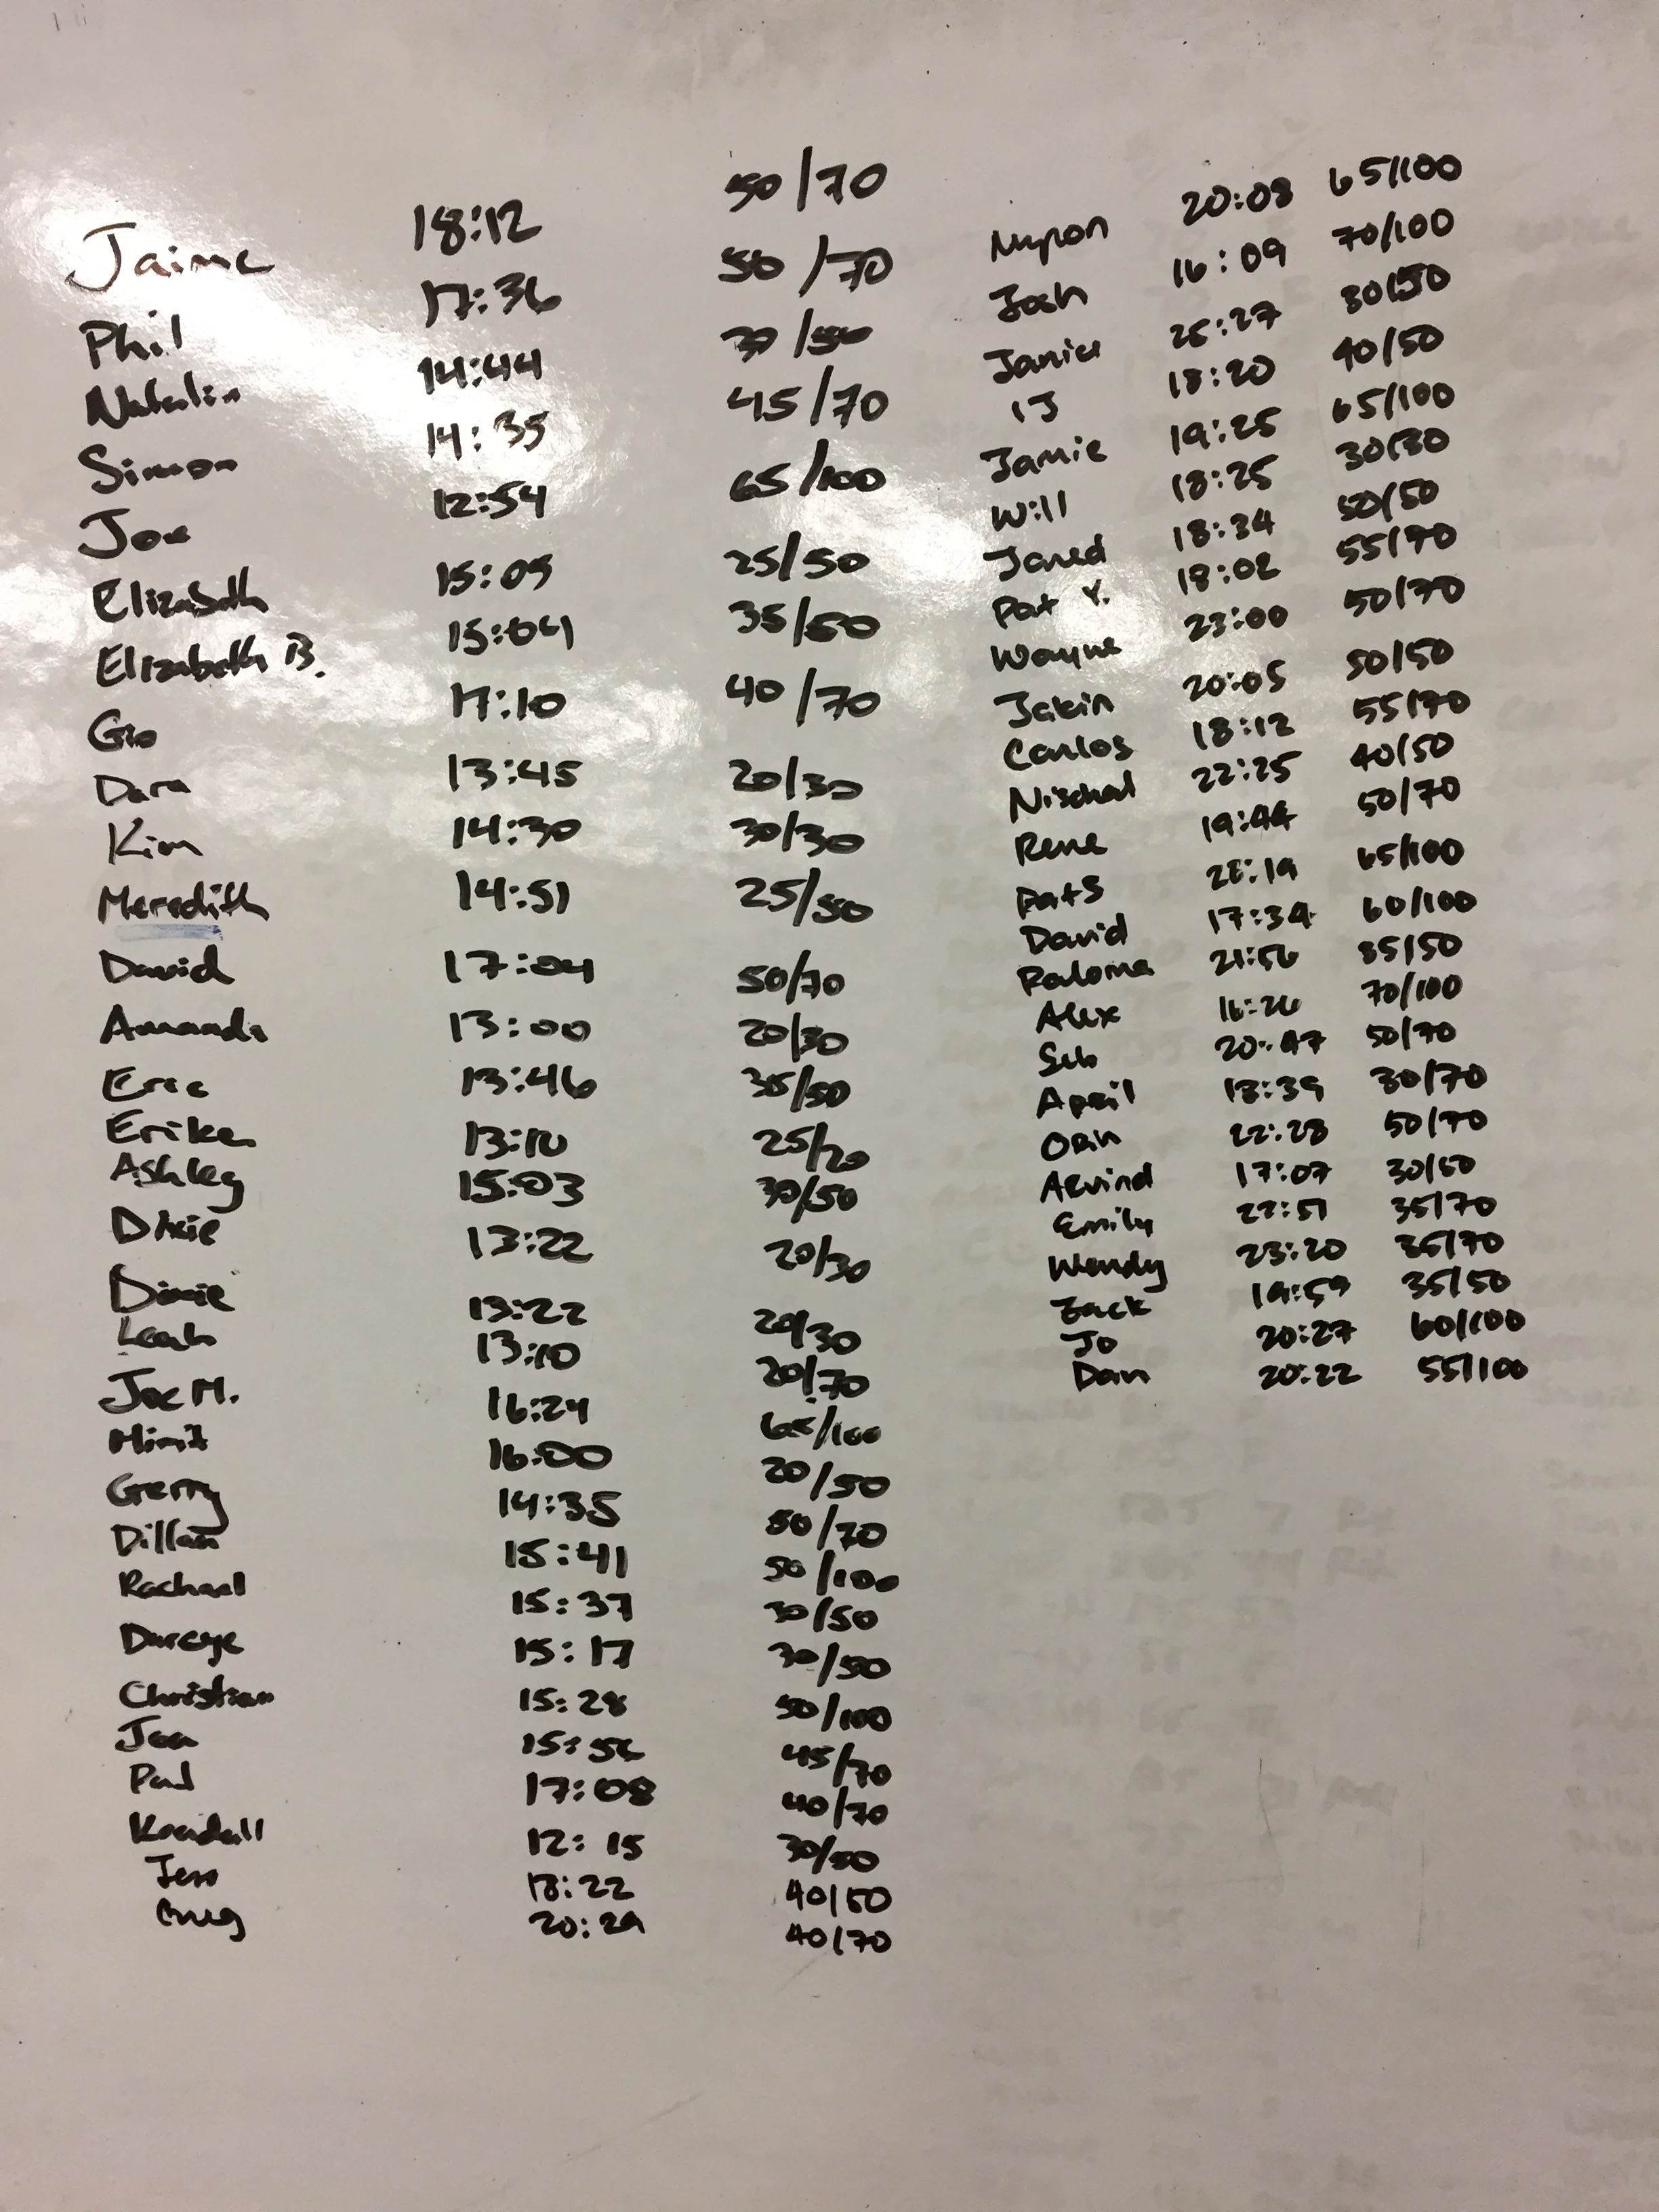 Jaime 18:12 50/70
Phil 17:36 50/70
Natalie 14:44 30/50
Simon 14:35 45/70
Joe 12:54 65/100
Elizabeth 15:05 25/50
Elizabeth B. 15:04 35/50
Gio 17:10 40/70
Dara 13:45 20/30
Kim 14:30 30/30
Meredith 14:51 25/50
David 17:04 50/70
Amanda 13:00 20/30
Eric 13:46 35/50
Erika 13:10 25/20
Ashley 15:03 30/50
Dixie 13:22 20/30
Dixie 13:22 20/30
Leah 13:10 20/70
Joe M. 16:24 65/100
16:00 20/50
Gerry 14:35 50/70
Dillan 15:41 50/100
Rachael 15:37 30/50
Darcye 15:17 30/50
Christian 15:28 50/100
15:56 45/70
Paul 17:08 40/70
Kendall 12:15 30/50
Jess 18:22 40/50
Greg 20:29 40/70
Myron 20:08 65/100
Josh 16:09 70/100
Janice 25:27 30/50
IJ 18:20 40/50
Jamie 19:25 65/100
Will 18:25 30/30
Jared 18:34 50/50
Pat Y. 18:02 55/70
Wayne 23:00 50/70
Jakin 20:05 50/50
Carlos 18:12 55/70
Nischal 22:25 40/50
Rene 19:44 50/70
Pat S 65/100
David 17:34 60/100
Paloma 21:56 35/50
Alex 16:26 70/100
Seb 20:47 50/70
April 18:39 30/70
Orin 22:28 50/70
Arvind 17:07 30/50
Emily 22:51 35/70
Wendy 23:20 35/70
Zack 19:59 35/50
Jo 20:27 60/100
Dan 20:22 55/100